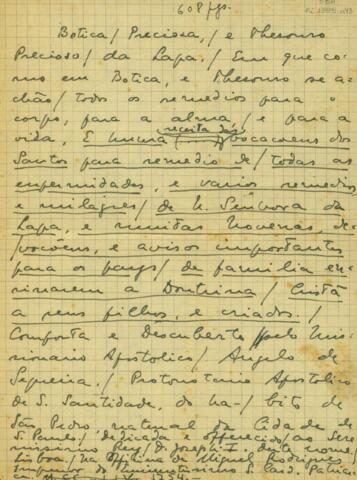 608 pgs.
Botica / Preciosa, / e Thesouro
Precioso / da Lapa. / Em que co-
mo em Botica, e Thesouro se a-
chão / todos os remedios para o
corpo, para a alma, / e para a
vida, E huma receita das vocacoens dos
Santos para remedio de / todas as
enfermidades, e varios remedios,
e milagres / de N. Senhora da
Lapa, e muitas Novenas, de-
/ voções, e avisos importantes
para os pays / de familia en-
sinarem a Doutrina / Cristã
a seus filhos, e criados. /
Composta e Descuberta / pelo Mis-
sionario Apostolico / Angelo de
Sequeira, / Protonotario Apostolico
de S. Santidade, do ha- / bito de
São Pedro natural da Cidade de
S. Paulo / dedicada e offerecido / ao Sere-
nissimo Rey / D. Joseph I. deste nome /
Lisboa. / Na Officina de Miguel Rodrigues,
Impressor do Eminentissimo S. Card. Patriar-
ca. 1754.